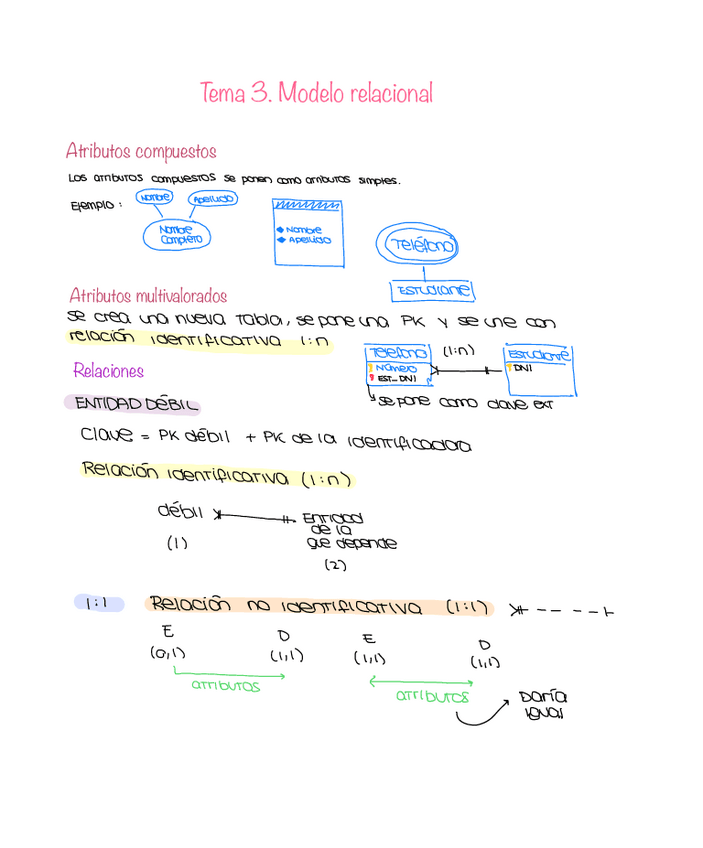 Tema 3. Modelo relacional
Atributos compuestos
Los atributos compuestos se ponen como atributos simples.
Ejemplo :
Nombre
Apellido
Nombre
Completo
◆ Nombre
◆ Apellido
Teléfono
ESTUDIANTE
Atributos multivalorados
se crea una nueva Tabla, se pone una PK y se une con
relación identificativa 1:n
Teléfono
Número
EST_DNI
(1:n)
Estudiante
DNI
se pone como clave ext
Relaciones
ENTIDAD DÉBIL
Clave = PK débil + PK de la identificadora
Relación identificativa (1:n)
débil
Entidad
de la
que depende
(1)
(2)
1:1
Relación no identificativa (1:1)
E
D
E
D
(0,1)
(1,1)
(1,1)
(1,1)
atributos
atributos
Daría
igual